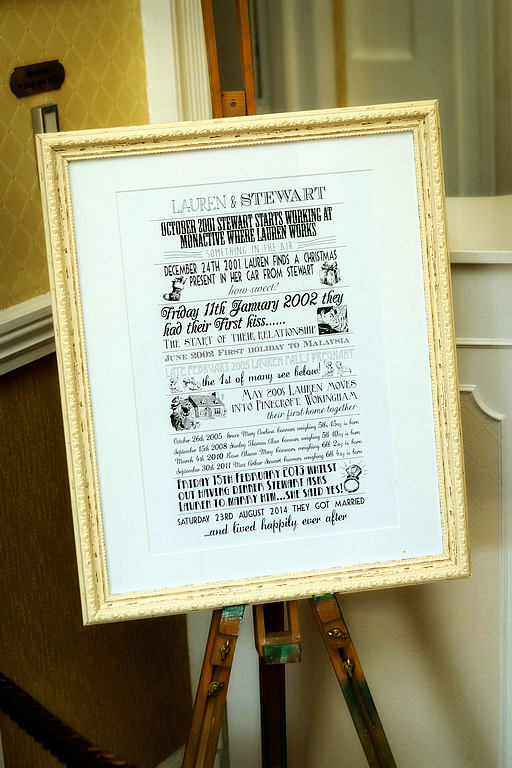 LAUREN & STEWART
OCTOBER 2001 STEWART STARTS WORKING AT
MONACTIVE WHERE LAUREN WORKS
SOMETHING IN THE AIR
DECEMBER 24TH 2001 LAUREN FINDS A CHRISTMAS
PRESENT IN HER CAR FROM STEWART
how sweet!
Friday 11th January 2002 they
had their first kiss......
THE START OF THEIR RELATIONSHIP
JUNE 2002 FIRST HOLIDAY TO MALAYSIA
LATE FEBRUARY 2005 LAUREN FALLS PREGNANT
the 1st of many see below!
MAY 2005 LAUREN MOVES
INTO PINECROFT, WOKINGHAM
their first home together
October 26th 2005 Grace Mary Carolina Cannon weighing 5lb 15oz is born
September 15th 2008 Stanley Thomas Alan Cannon weighing 5lb 10oz is born
March 4th 2010 Rose Oltana May Cannon weighing 6lb 2oz is born
September 30th 2011 Max Arthur Stewart Cannon weighing 6lb 4oz is born
FRIDAY 15TH FEBRUARY 2013 WHILST
OUT HAVING DINNER STEWART ASKS
LAUREN TO MARRY HIM...SHE SAID YES!
SATURDAY 23RD AUGUST 2014 THEY GOT MARRIED
...and lived happily ever after